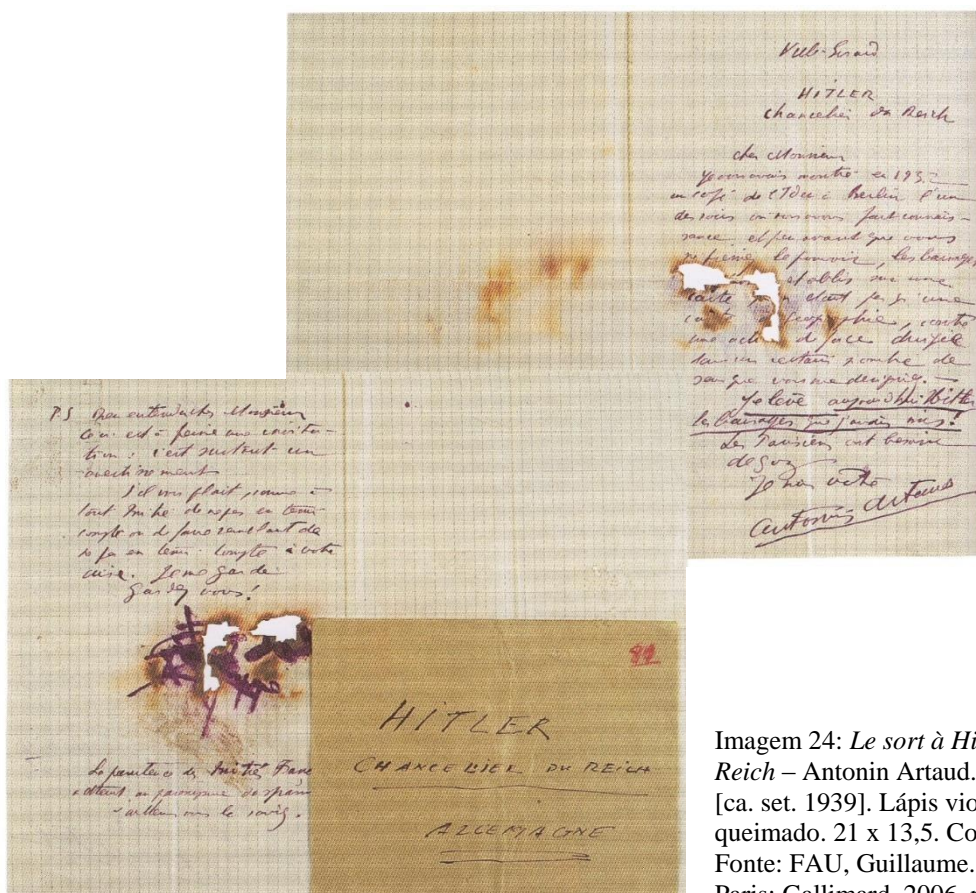 HITLER
Chancelier du Reich
cher Monsieur
Je vous avais montré en 193
au café de l'Ider à Berlin l'un
des soirs où nous avons fait connais-
sance et peu avant que vous
ne preniez le pouvoir, les barrages
établis sur une
carte
carte géographie, contre
action de force dirigée
dans un certain nombre de
sens que vous me désigniez.
Je lève aujourd'hui Hitler
les barrages que j'avais mis!
Les Parisiens ont besoin
de gaz
Je suis votre
Antonin Artaud
P.S Bien entendu cher Monsieur
ceci est à peine une invita-
tion : c'est surtout un
avertissement
S'il vous plait comme à
tout Initié de ne pas en tenir
compte ou de faire semblant de
ne pas en tenir compte à votre
aise. Je me garde
Gardez vous!
La
HITLER
CHANCELIER DU REICH
ALLEMAGNE
Imagem 24: Le sort à Hi
Reich – Antonin Artaud.
[ca. set. 1939]. Lápis vio
queimado. 21 x 13,5. Co
Fonte: FAU, Guillaume.
Paris: Gallimard, 2006